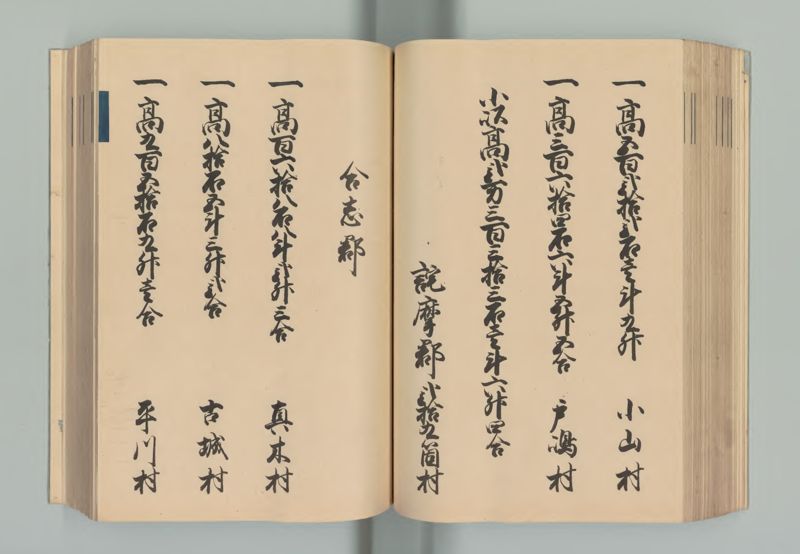 一高五百弐拾弐石壱斗九升 小山村
一高三百六拾四石六斗五升五合 戸嶋村
小以高弐万三百三拾三石壱斗六升四合
詫摩郡弐拾九箇村
合志郡
一高百六拾八石八斗弐升三合 真木村
一高八拾石五斗三升弐合 古城村
一高九百五拾石九升壱合 平川村